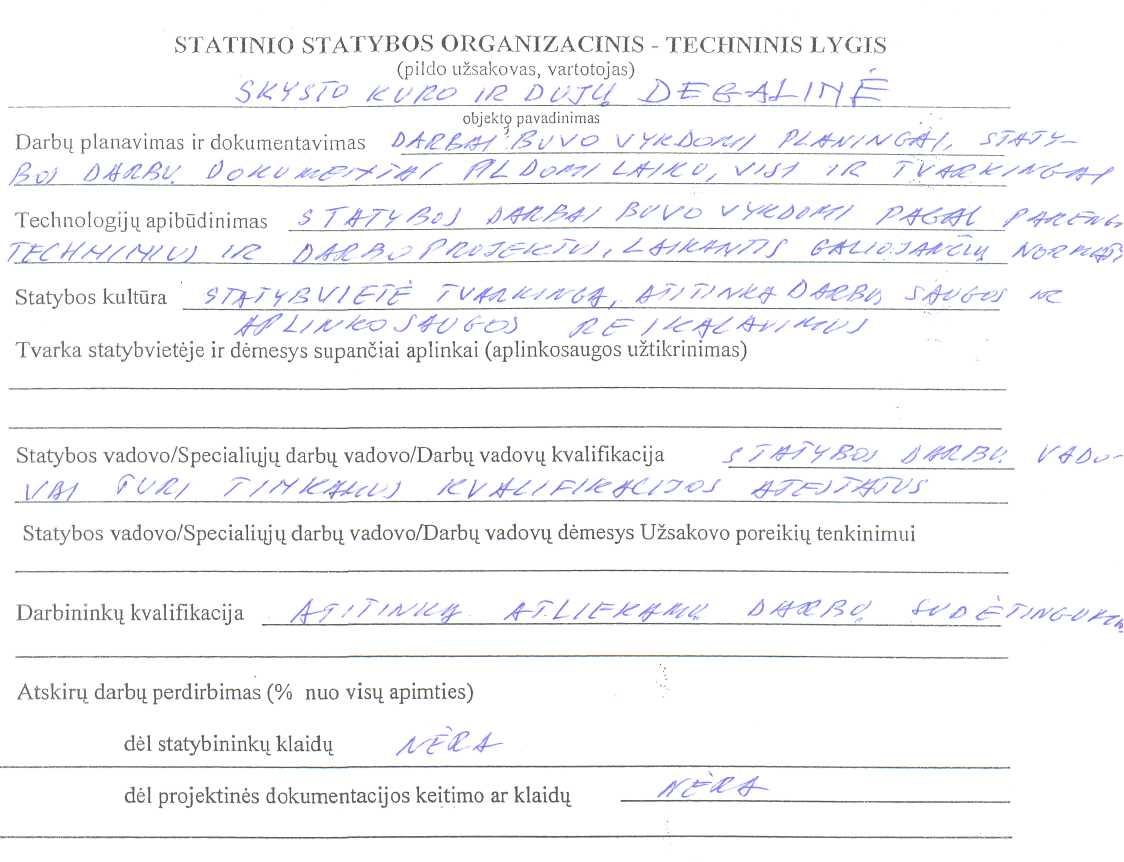 STATINIO STATYBOS ORGANIZACINIS - TECHNINIS LYGIS
(pildo užsakovas, vartotojas)
SKYSTO KURO IR DUJŲ DEGALINĖ
objekto pavadinimas
Darbų planavimas ir dokumentavimas DARBAI BUVO VYKDOMI PLANINGAI, STATY-
BOS DARBŲ DOKUMENTAI PILDOMI LAIKU, VISI IR TVARKINGAI
Technologijų apibūdinimas STATYBOS DARBAI BUVO VYKDOMI PAGAL PARENG
TECHNINIUS IR DARBO PROJEKTUS, LAIKANTIS GALIOJANČIŲ NORMATY
Statybos kultūra STATYBVIETĖ TVARKINGA, ATITINKA DARBŲ SAUGOS IR
APLINKOSAUGOS REIKALAVIMUS
Tvarka statybvietėje ir dėmesys supančiai aplinkai (aplinkosaugos užtikrinimas)
Statybos vadovo/Specialiųjų darbų vadovo/Darbų vadovų kvalifikacija STATYBOS DARBŲ VADO-
VAI TURI TINKAMUS KVALIFIKACIJOS ATESTATUS
Statybos vadovo/Specialiųjų darbų vadovo/Darbų vadovų dėmesys Užsakovo poreikių tenkinimui
Darbininkų kvalifikacija ATITINKA ATLIEKAMŲ DARBŲ SUDĖTINGUM
Atskirų darbų perdirbimas (% nuo visų apimties)
dėl statybininkų klaidų NĖRA
dėl projektinės dokumentacijos keitimo ar klaidų NĖRA